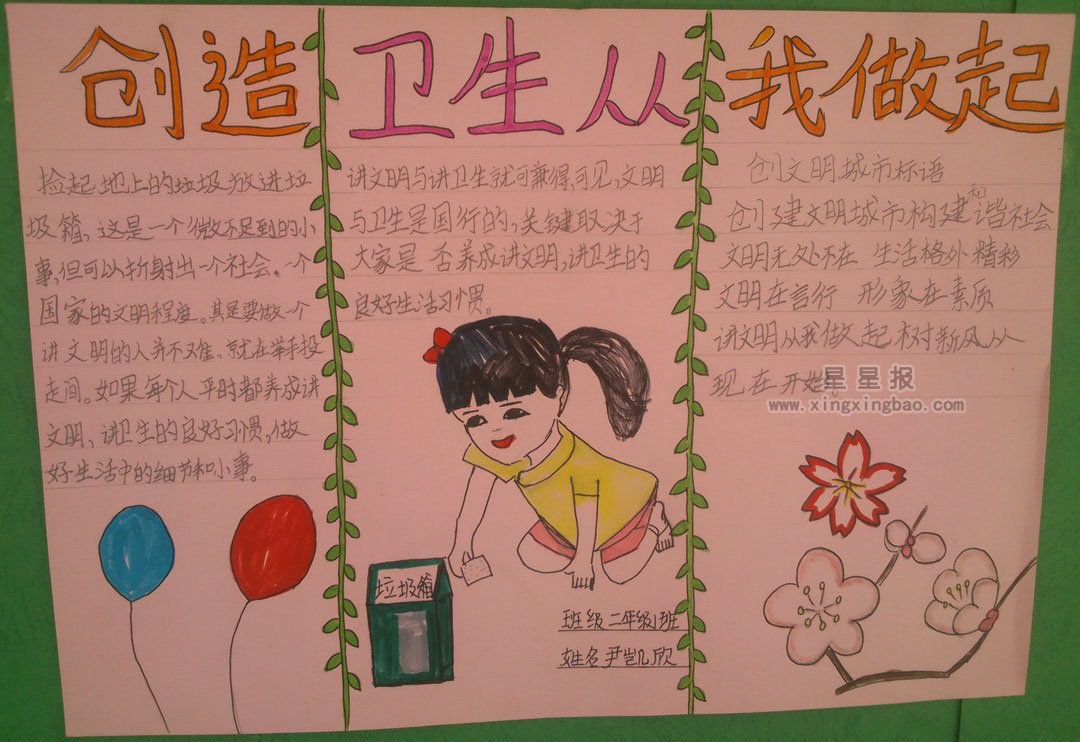 创造 卫生 从 我做起
捡起地上的垃圾放进垃
圾箱，这是一个微不足到的小
事，但可以折射出一个社会。一个
国家的文明程度。其是要做一个
讲文明的人并不难，就在举手投
走间。如果每个人平时都养成讲
文明、讲卫生的良好习惯，做
好生活中的细节和小事。
讲文明与讲卫生就可兼得，可见，文明
与卫生是国行的，关键取决于
大家是 否养成讲文明，讲卫生的
良好生活习惯。
创文明城市标语
创建文明城市构建和谐社会
文明无处不在 生活格外精彩
文明在言行 形象在素质
讲文明从我做起 树新风从
现在开始。
星星报
www.xingxingbao.com
垃圾箱
班级二年级1班
姓名尹凯欣